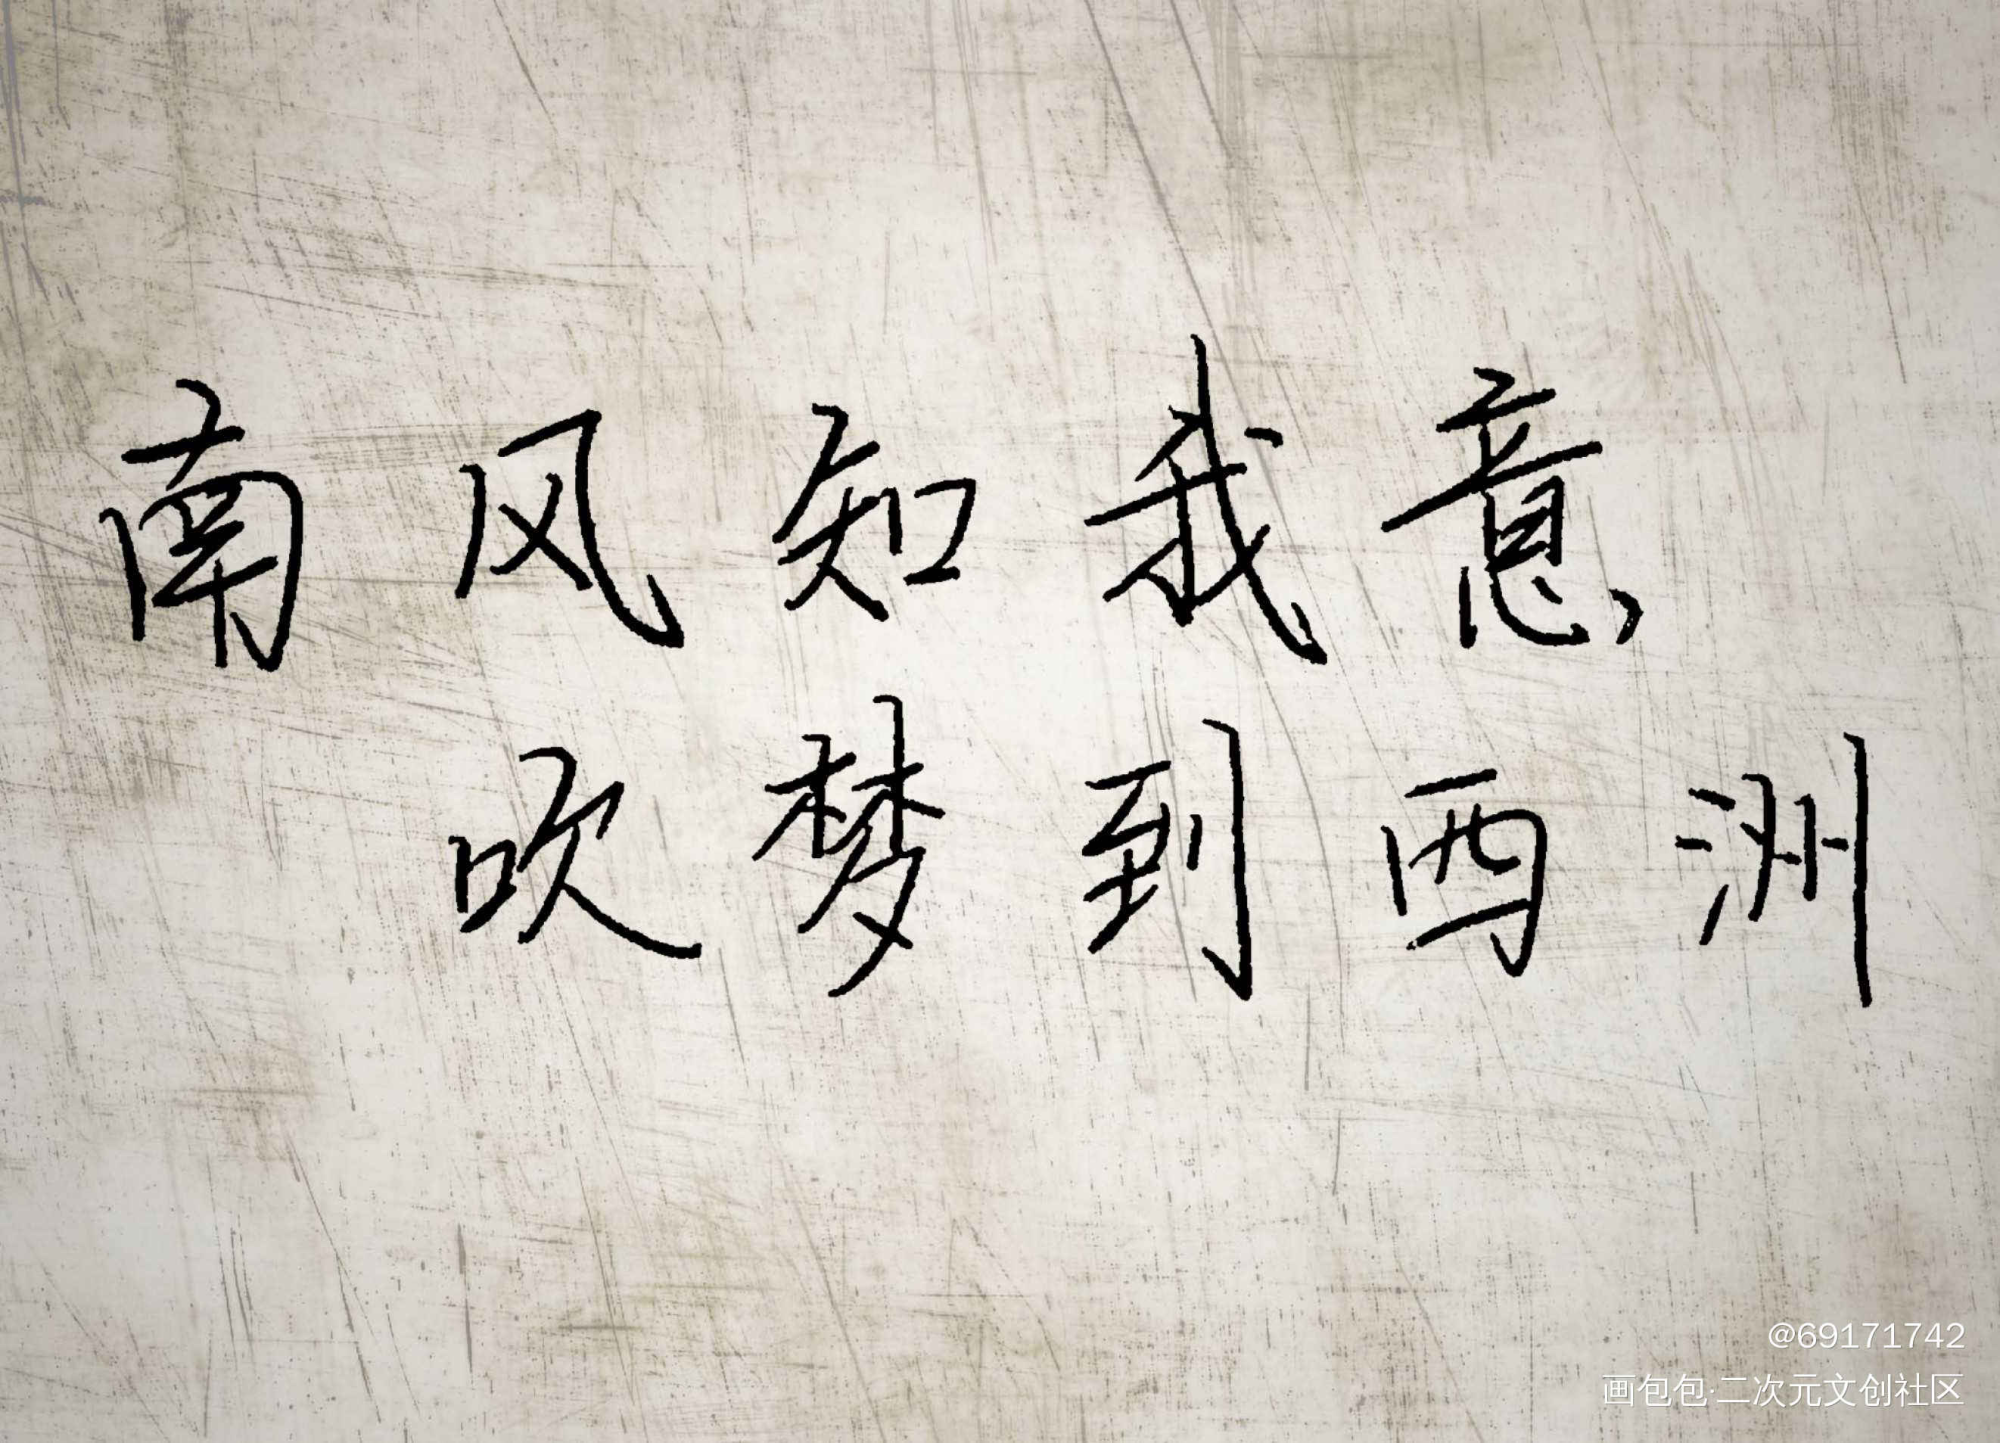 南风知我意，
吹梦到西洲
@69171742
画包包·二次元文创社区